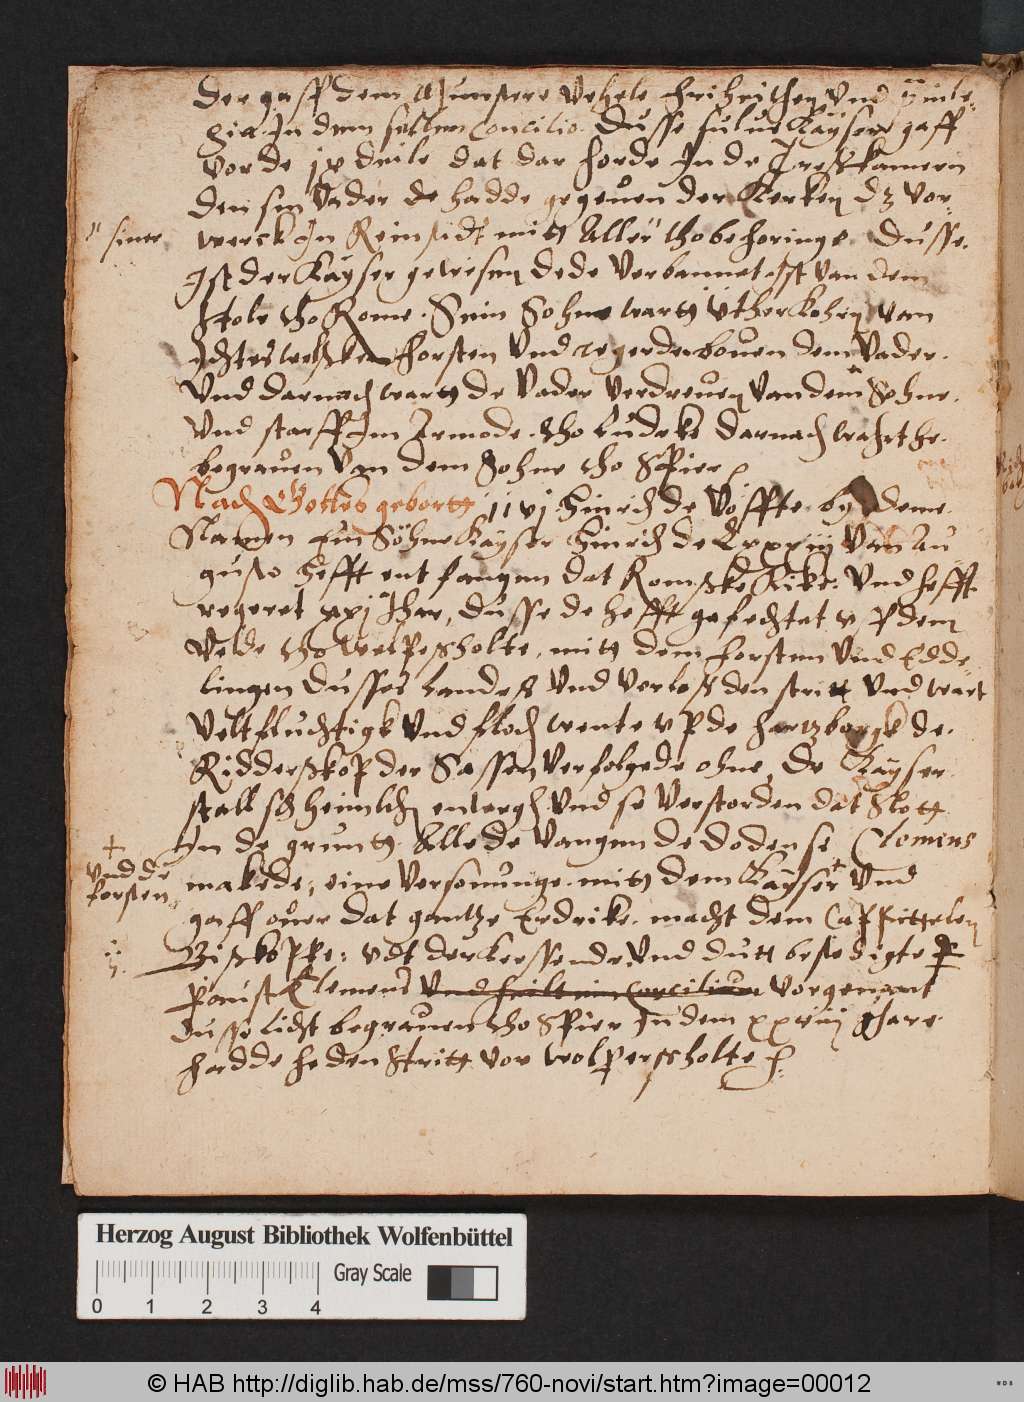 der gaff dem Munstere vehele friheithen vnd
gia In dem sulluen Concilio. Dusse sulue Kayser gaff
vor de deile dat dar horde In de Treskamern
den sin vader de hadde gegeuen der Kerken dz vor
" siner
werck In Reinstidt mitt Aller thobehoringe. Dusse.
Ist der Kayser gewesen dede verbannet Ist van dem
Stole tho Rome. Sein Sohne wartt vtherkohrn van
forsten vnd regerde bouen dem vader.
vnd darnach wartt de vader verdreuen van dem Sohne.
vnd starff Im Armode. tho Ludeke darnach wahrt he.
begrauen van dem Sohne tho Spier
Nach Gottes gebortt Hinrich de Vöffte by deme.
Namen ein Söhne Kayser Hinrich de van Au
gusto hefft entfangen dat Romske Rike: vnd hefft
regeret xxj Jhar, dusse de hefft gefechtet vp dem
velde tho Welpesholte, mitt dem forsten vnd Edde
lingen dusses landes vnd verloß den stritt vnd wart
veltfluchtigk vnd floch wente vp de hartzborgk de.
Ridderskop der Sassen verfolgede ohne, De Kayser
stall sich heimlich enwegh vnd se verstorden dat Slott
In de grunt. Alle de vangen de doden se Clemens
+
vnd de
forsten
makede, eine versonunge. mitt dem Kayser + vnd
gaff ouer dat gantze Erdrike. macht dem Cappittelen
Bisköppe: vdt der kerssende vnd dutt bestedigte
Pauest Clemens vnd heilt ein Concilium vorgenant
dusse licht begrauen tho Spier In dem xxviij Jare.
hadde he den Stritt vor Wolpersholte
Herzog August Bibliothek Wolfenbüttel
Gray Scale
0 1 2 3 4
© HAB http://diglib.hab.de/mss/760-novi/start.htm?image=00012